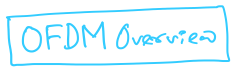 OFDM Overview